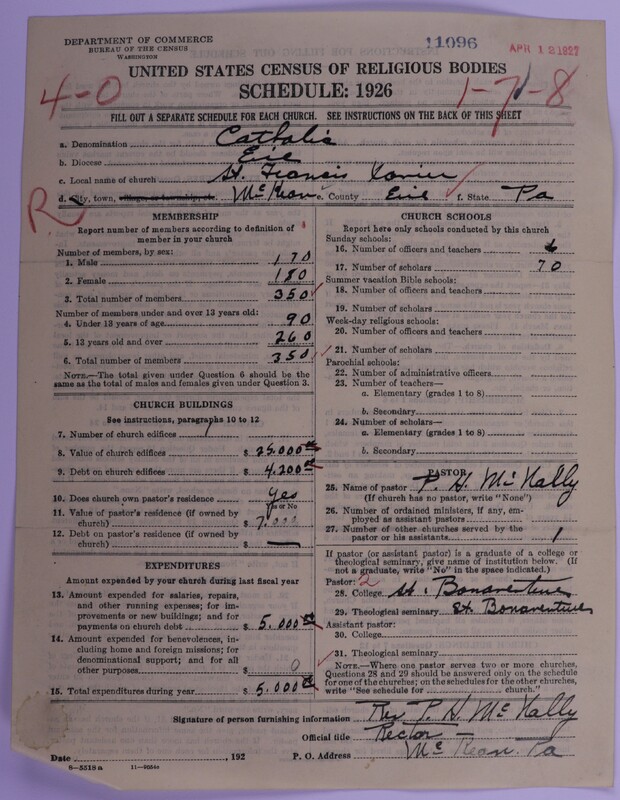 DEPARTMENT OF COMMERCE
BUREAU OF THE CENSUS
WASHINGTON
11096
APR 12 1927
UNITED STATES CENSUS OF RELIGIOUS BODIES
SCHEDULE: 1926
4-0
1-7-8
FILL OUT A SEPARATE SCHEDULE FOR EACH CHURCH. SEE INSTRUCTIONS ON THE BACK OF THIS SHEET
a. Denomination Catholic
b. Diocese Erie
c. Local name of church St. Francis Xavier
d. City, town, village, or township, etc. McKean e. County Erie f. State Pa
R
MEMBERSHIP
Report number of members according to definition of member in your church
Number of members, by sex:
1. Male 170
2. Female 180
3. Total number of members 350
Number of members under and over 13 years old:
4. Under 13 years of age 90
5. 13 years old and over 260
6. Total number of members 350
NOTE.—The total given under Question 6 should be the
same as the total of males and females given under Question 3.
CHURCH BUILDINGS
See instructions, paragraphs 10 to 12
7. Number of church edifices 1
8. Value of church edifices $ 25.000 00
9. Debt on church edifices $ 4.200 00
10. Does church own pastor's residence yes
Yes or No
11. Value of pastor's residence (if owned by
church) $ 7.000
12. Debt on pastor's residence (if owned by
church) $ —
EXPENDITURES
Amount expended by your church during last fiscal year
13. Amount expended for salaries, repairs,
and other running expenses; for im-
provements or new buildings; and for
payments on church debt $ 5.000 00
14. Amount expended for benevolences, in-
cluding home and foreign missions; for
denominational support; and for all
other purposes $ 0
15. Total expenditures during year $ 5.000 00
CHURCH SCHOOLS
Report here only schools conducted by this church
Sunday schools:
16. Number of officers and teachers 6
17. Number of scholars 70
Summer vacation Bible schools:
18. Number of officers and teachers
19. Number of scholars
Week-day religious schools:
20. Number of officers and teachers
21. Number of scholars
Parochial schools:
22. Number of administrative officers
23. Number of teachers—
a. Elementary (grades 1 to 8)
b. Secondary
24. Number of scholars—
a. Elementary (grades 1 to 8)
b. Secondary
PASTOR
25. Name of pastor P. H. McNally
(If church has no pastor, write "None")
26. Number of ordained ministers, if any, em-
ployed as assistant pastors
27. Number of other churches served by the
pastor or his assistants 1
If pastor (or assistant pastor) is a graduate of a college or
theological seminary, give name of institution below. (If
not a graduate, write "No" in the space indicated.)
Pastor: 2
28. College St. Bonaventure
29. Theological seminary St. Bonaventure
Assistant pastor:
30. College
31. Theological seminary
NOTE.—Where one pastor serves two or more churches,
Questions 28 and 29 should be answered only on the schedule
for one of the churches; on the schedules for the other churches,
write "See schedule for church."
Signature of person furnishing information Rev P. H. McNally
Official title Rector
Date , 192 P. O. Address McKean. Pa
8—5518 a 11—9264